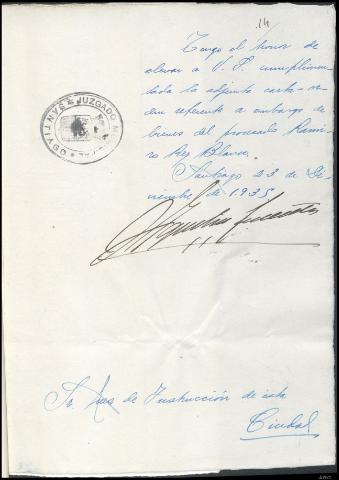 14
Tengo el honor de
elevar a V. S. cumplimen-
tada la adjunta carta-or-
den referente a embargo de
bienes del procesado Rami-
ro Rey Blanco.
Santiago 23 de Di-
ciembre de 1935
JUZGADO MUNICIPAL
SANTIAGO
Sr. Juez de Instrucción de esta
Ciudad